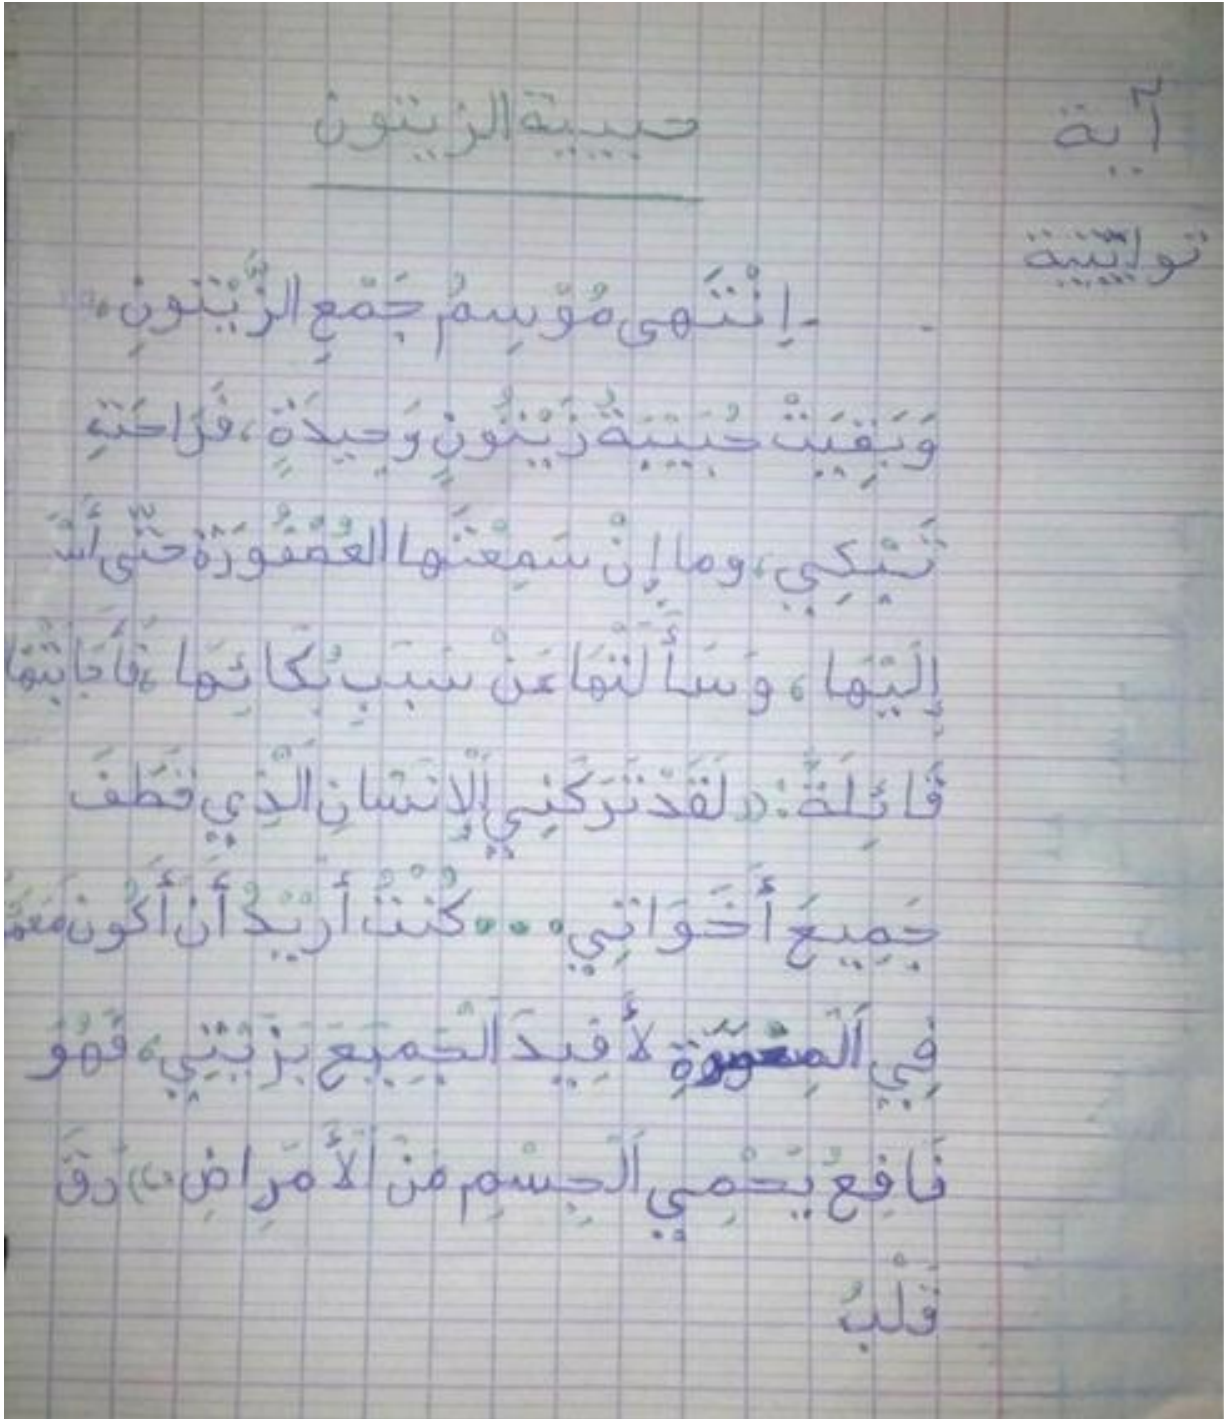 آية
حبيبة الزيتون
تواتية
- إِنْتَهَى مُوْسِمُ جَمْعِ الزَّيْتُونِ،
وَبَقِيَتْ حُبَيْبَةُ زَيْتُونٍ وَحِيدَةٍ، فَرَاحَتِ
تَبْكِي، وما إِنْ سَمِعَتْها العُصْفُورَةُ حَتَّى أَتَتْ
إِلَيْهَا، وَسَأَلَتْهَا عَنْ سَبَبِ بُكَائِهَا، فَأَجَابَتْهَا
قَائِلَةً: « لَقَدْ تَرَكَنِي الْإِنْسَانِ الَّذِي قَطَفَ
جَمِيعَ أَخَوَاتِي... كُنْتُ أُرِيْدُ أَنْ أَكُونَ مَعَهُمْ
فِي اَلْمِعْصَرَةِ لأُفِيدَ الْجَمِيعَ بِزَيْتِي، فَهُوَ
نَافِعُ يَحْمِي اَلْجِسْمِ مِنَ الأَمْرَاضِ » رَقَّ
قَلْبُ